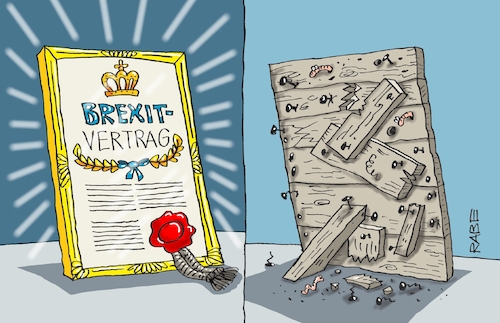 BREXIT-
VERTRAG
RABE